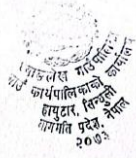 गाउँपालिका
गाउँ कार्यपालिकाको कार्यालय
हायुटार, सिन्धुली
बागमती प्रदेश, नेपाल
२०७३